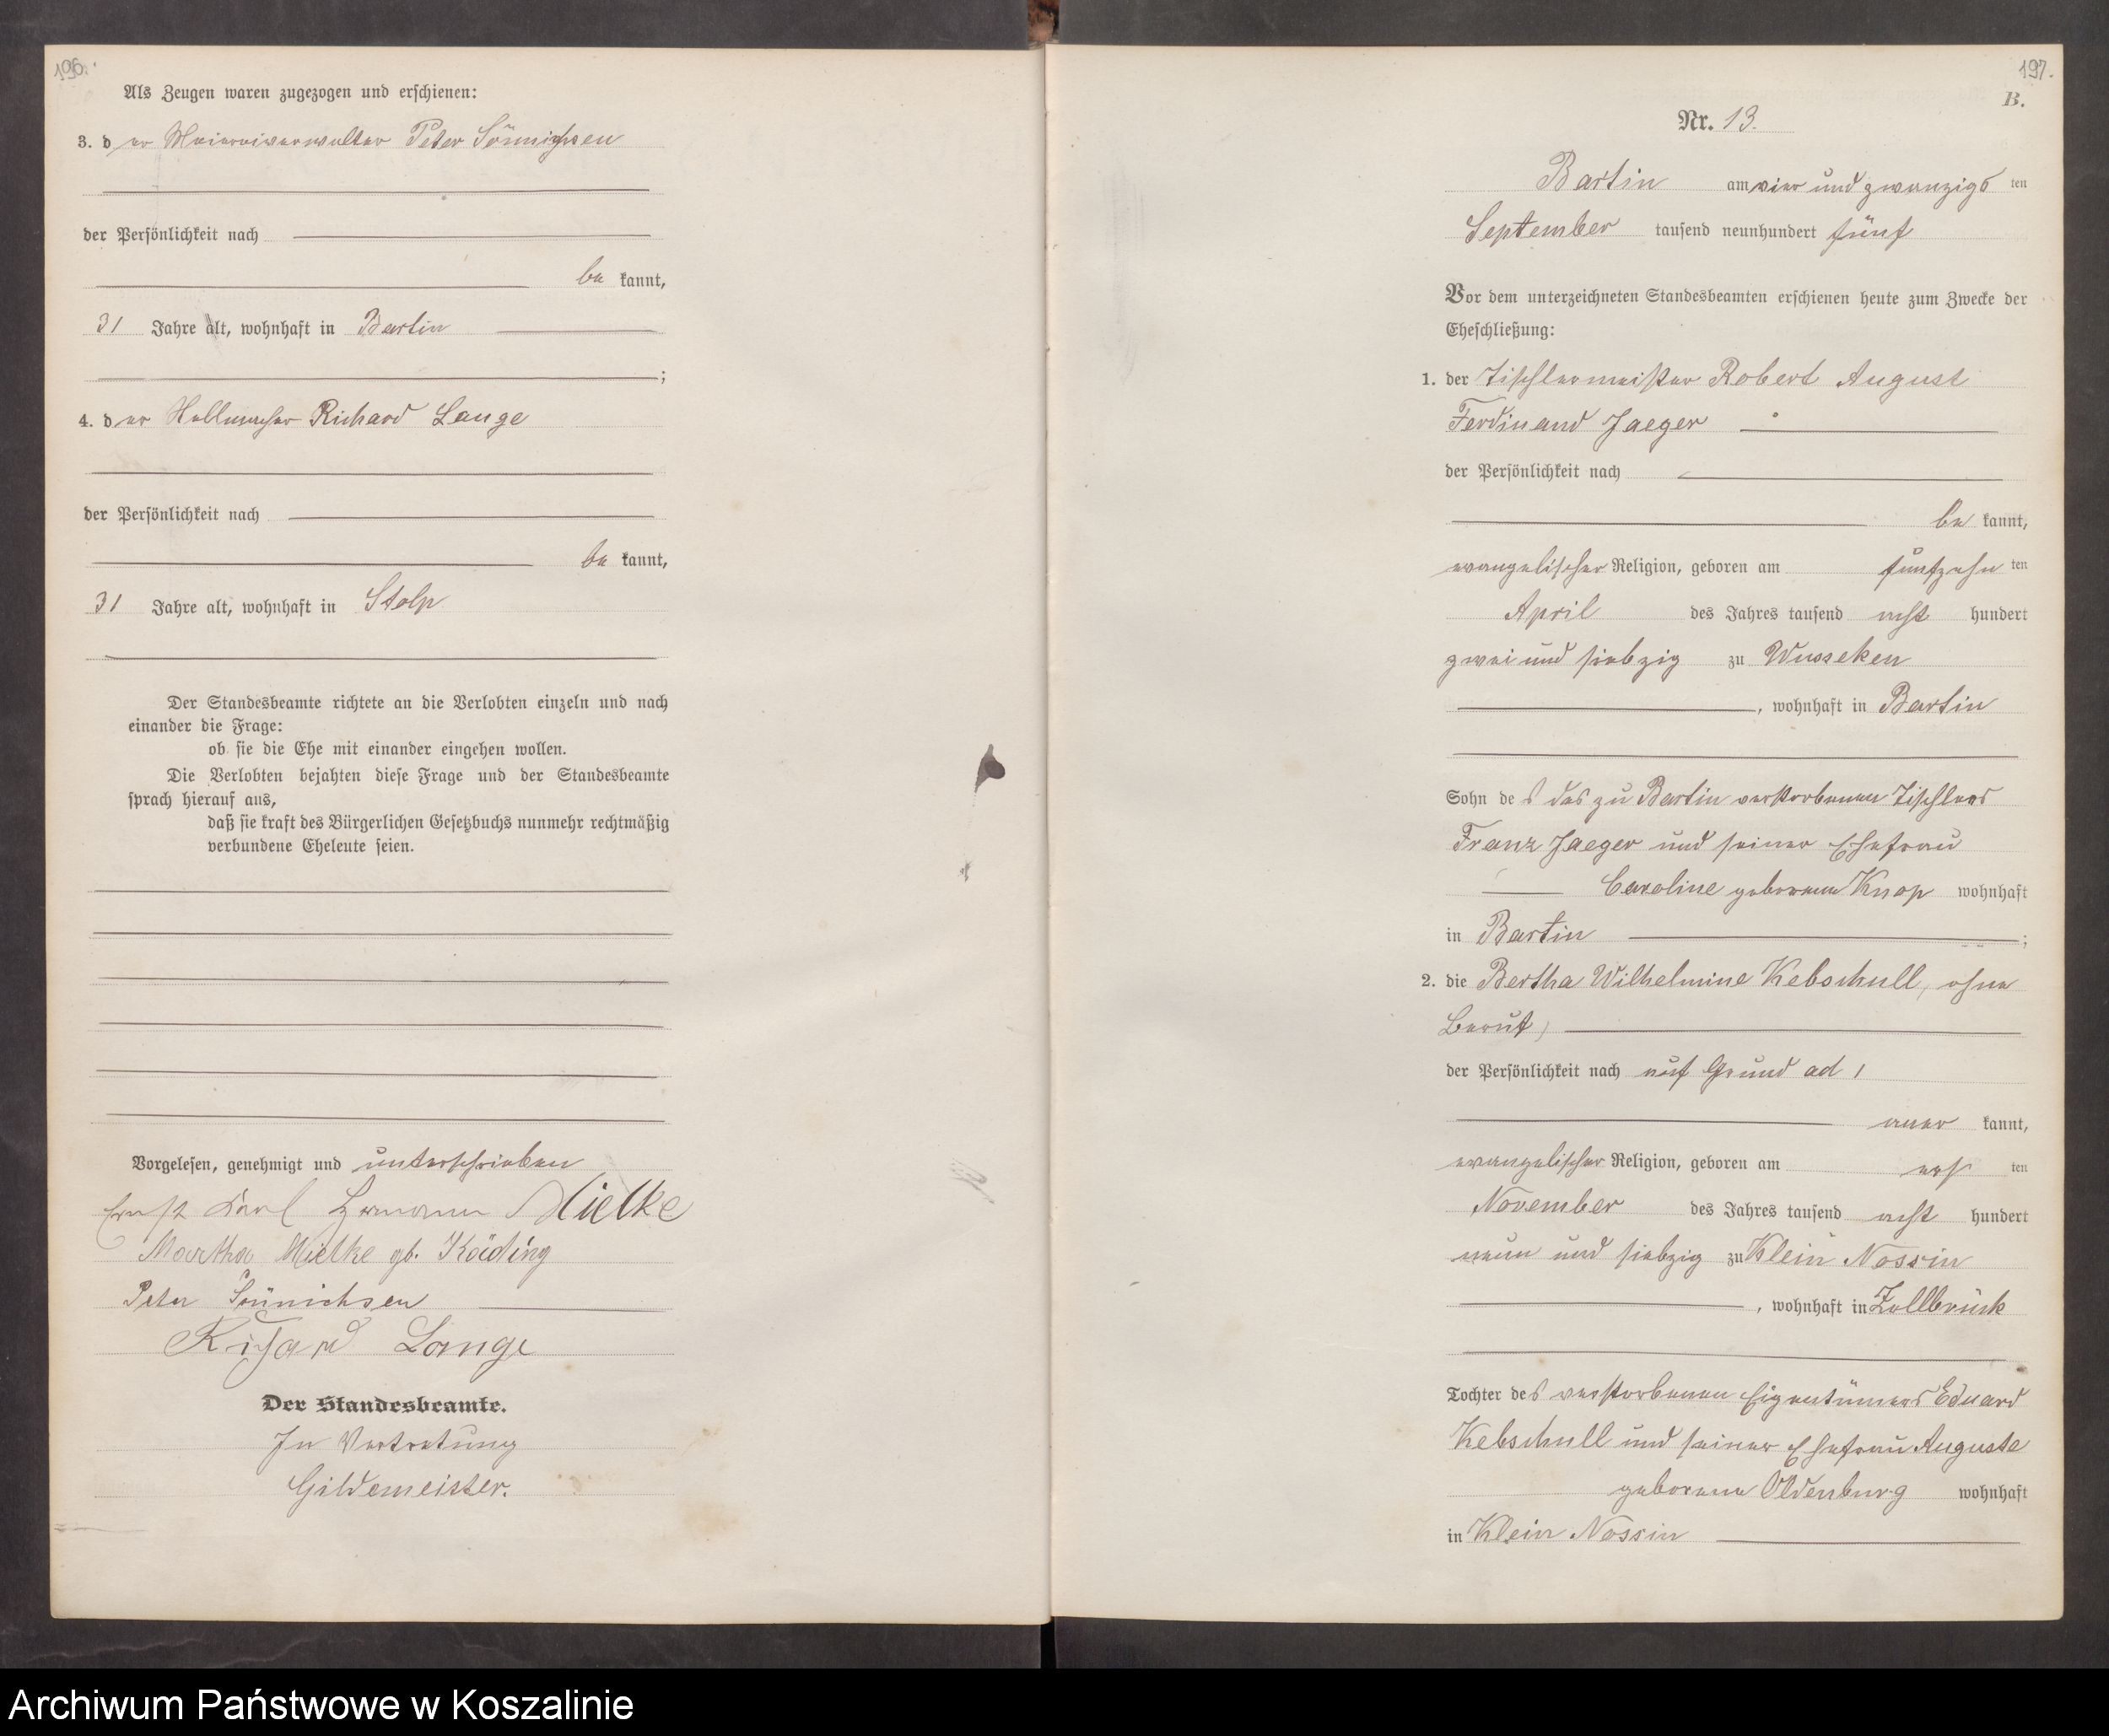 196.
Als Zeugen waren zugezogen und erschienen:
3. der Meiereiverwalter Peter Sönnichsen
der Persönlichkeit nach
be kannt,
31 Jahre alt, wohnhaft in Bartin
;
4. der Richard Lange
der Persönlichkeit nach
be kannt,
31 Jahre alt, wohnhaft in Stolp
Der Standesbeamte richtete an die Verlobten einzeln und nach
einander die Frage:
ob sie die Ehe mit einander eingehen wollen.
Die Verlobten bejahten diese Frage und der Standesbeamte
sprach hierauf aus,
daß sie kraft des Bürgerlichen Gesetzbuchs nunmehr rechtmäßig
verbundene Eheleute seien.
Vorgelesen, genehmigt und unterschrieben
Ernst Karl Hermann Mielke
Martha Mielke gb. Käding
Peter Sönnichsen
Richard Lange
Der Standesbeamte.
In Vertretung
Gildemeister.
197.
B.
Nr. 13.
Bartin am vier und zwanzigs ten
September tausend neunhundert fünf
Vor dem unterzeichneten Standesbeamten erschienen heute zum Zwecke der
Eheschließung:
1. der Tischlermeister Robert August
Ferdinand Jaeger
der Persönlichkeit nach
be kannt,
evangelischer Religion, geboren am fünfzehn ten
April des Jahres tausend acht hundert
zwei und siebzig zu Wusseken
, wohnhaft in Bartin
Sohn des des zu Bartin verstorbenen Tischlers
Franz Jaeger und seiner Ehefrau
Caroline geborene Knop wohnhaft
in Bartin ;
2. die Bertha Wilhelmine Kebschull, ohne
Beruf,
der Persönlichkeit nach auf Grund ad 1
aner kannt,
evangelischer Religion, geboren am ers ten
November des Jahres tausend acht hundert
neun und siebzig zu Klein Nossin
, wohnhaft in Zollbrück
Tochter des verstorbenen Eigentümers Eduard
Kebschull und seiner Ehefrau Auguste
geborene Oldenburg wohnhaft
in Klein Nossin
Archiwum Państwowe w Koszalinie